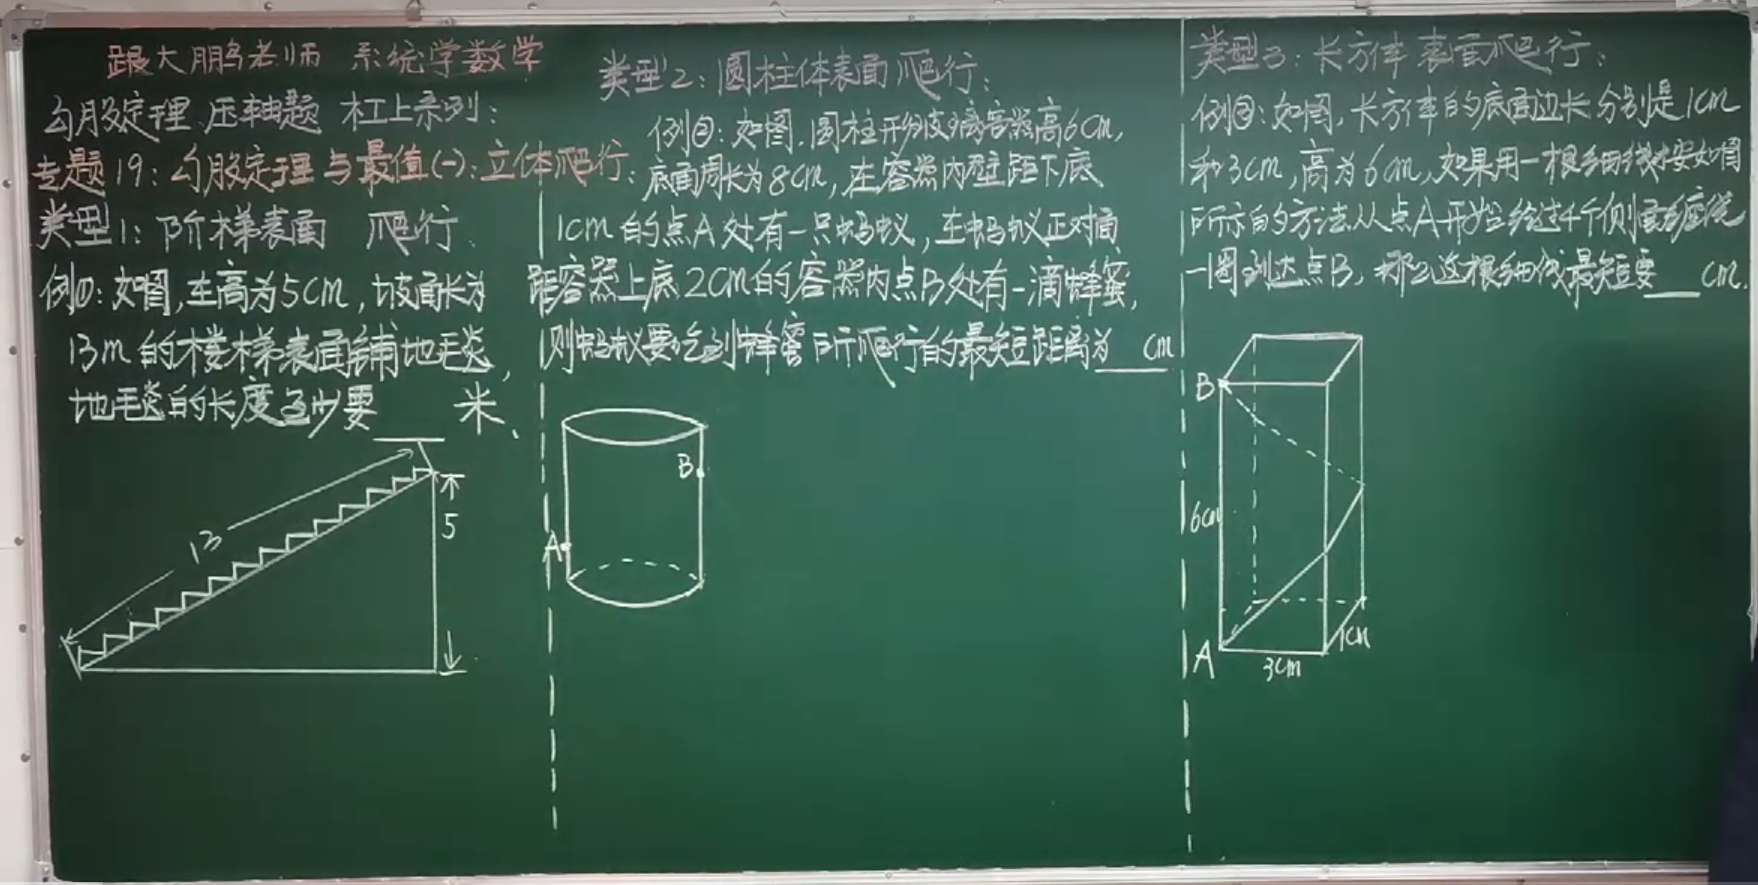 跟大鹏老师 系统学数学
勾股定理 压轴题 杠上系列:
专题19:勾股定理与最值(一):立体爬行:
类型1:阶梯表面 爬行.
例①:如图,在高为5cm,坡面长为
13m的楼梯表面铺地毯,
地毯的长度至少要 米、
13
5
类型2:圆柱体表面爬行:
例②:如图,圆柱形玻璃容器高6cm,
底面周长为8cm,在容器内壁距下底
1cm的点A处有一只蚂蚁,在蚂蚁正对面
距容器上底2cm的容器内点B处有一滴蜂蜜,
则蚂蚁要吃到蜂蜜所爬行的最短距离为___cm
B
A
类型3:长方体表面爬行:
例③:如图,长方体的底面边长分别是1cm
和3cm,高为6cm,如果用一根细线按如图
所示的方法从点A开始经过4个侧面缠绕
一圈到达点B,那么这根细线最短要___cm.
B
6cm
A
3cm
1cm